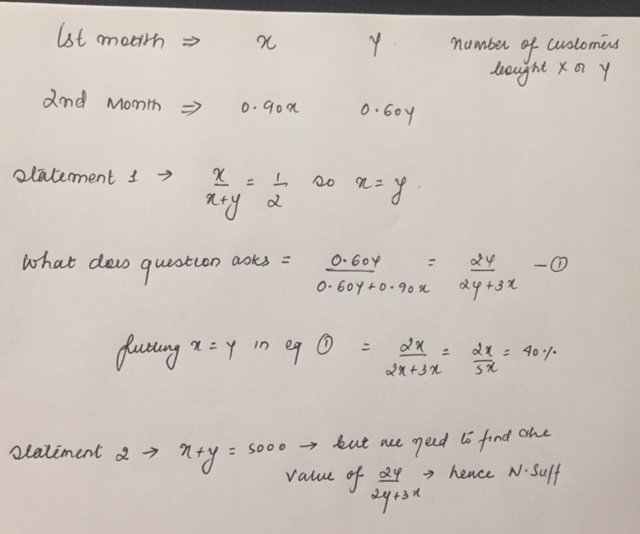 1st month ⇒ x y number of customers
bought x or y
2nd Month ⇒ 0.90x 0.60y
Statement 1 → x/(x+y) = 1/2 so x = y.
What does question asks = 0.60y/(0.60y+0.90x) = 2y/(2y+3x) —①
putting x = y in eq ① = 2x/(2x+3x) = 2x/5x = 40%
Statement 2 → x+y = 5000 → but we need to find the
value of 2y/(2y+3x) → hence N.Suff